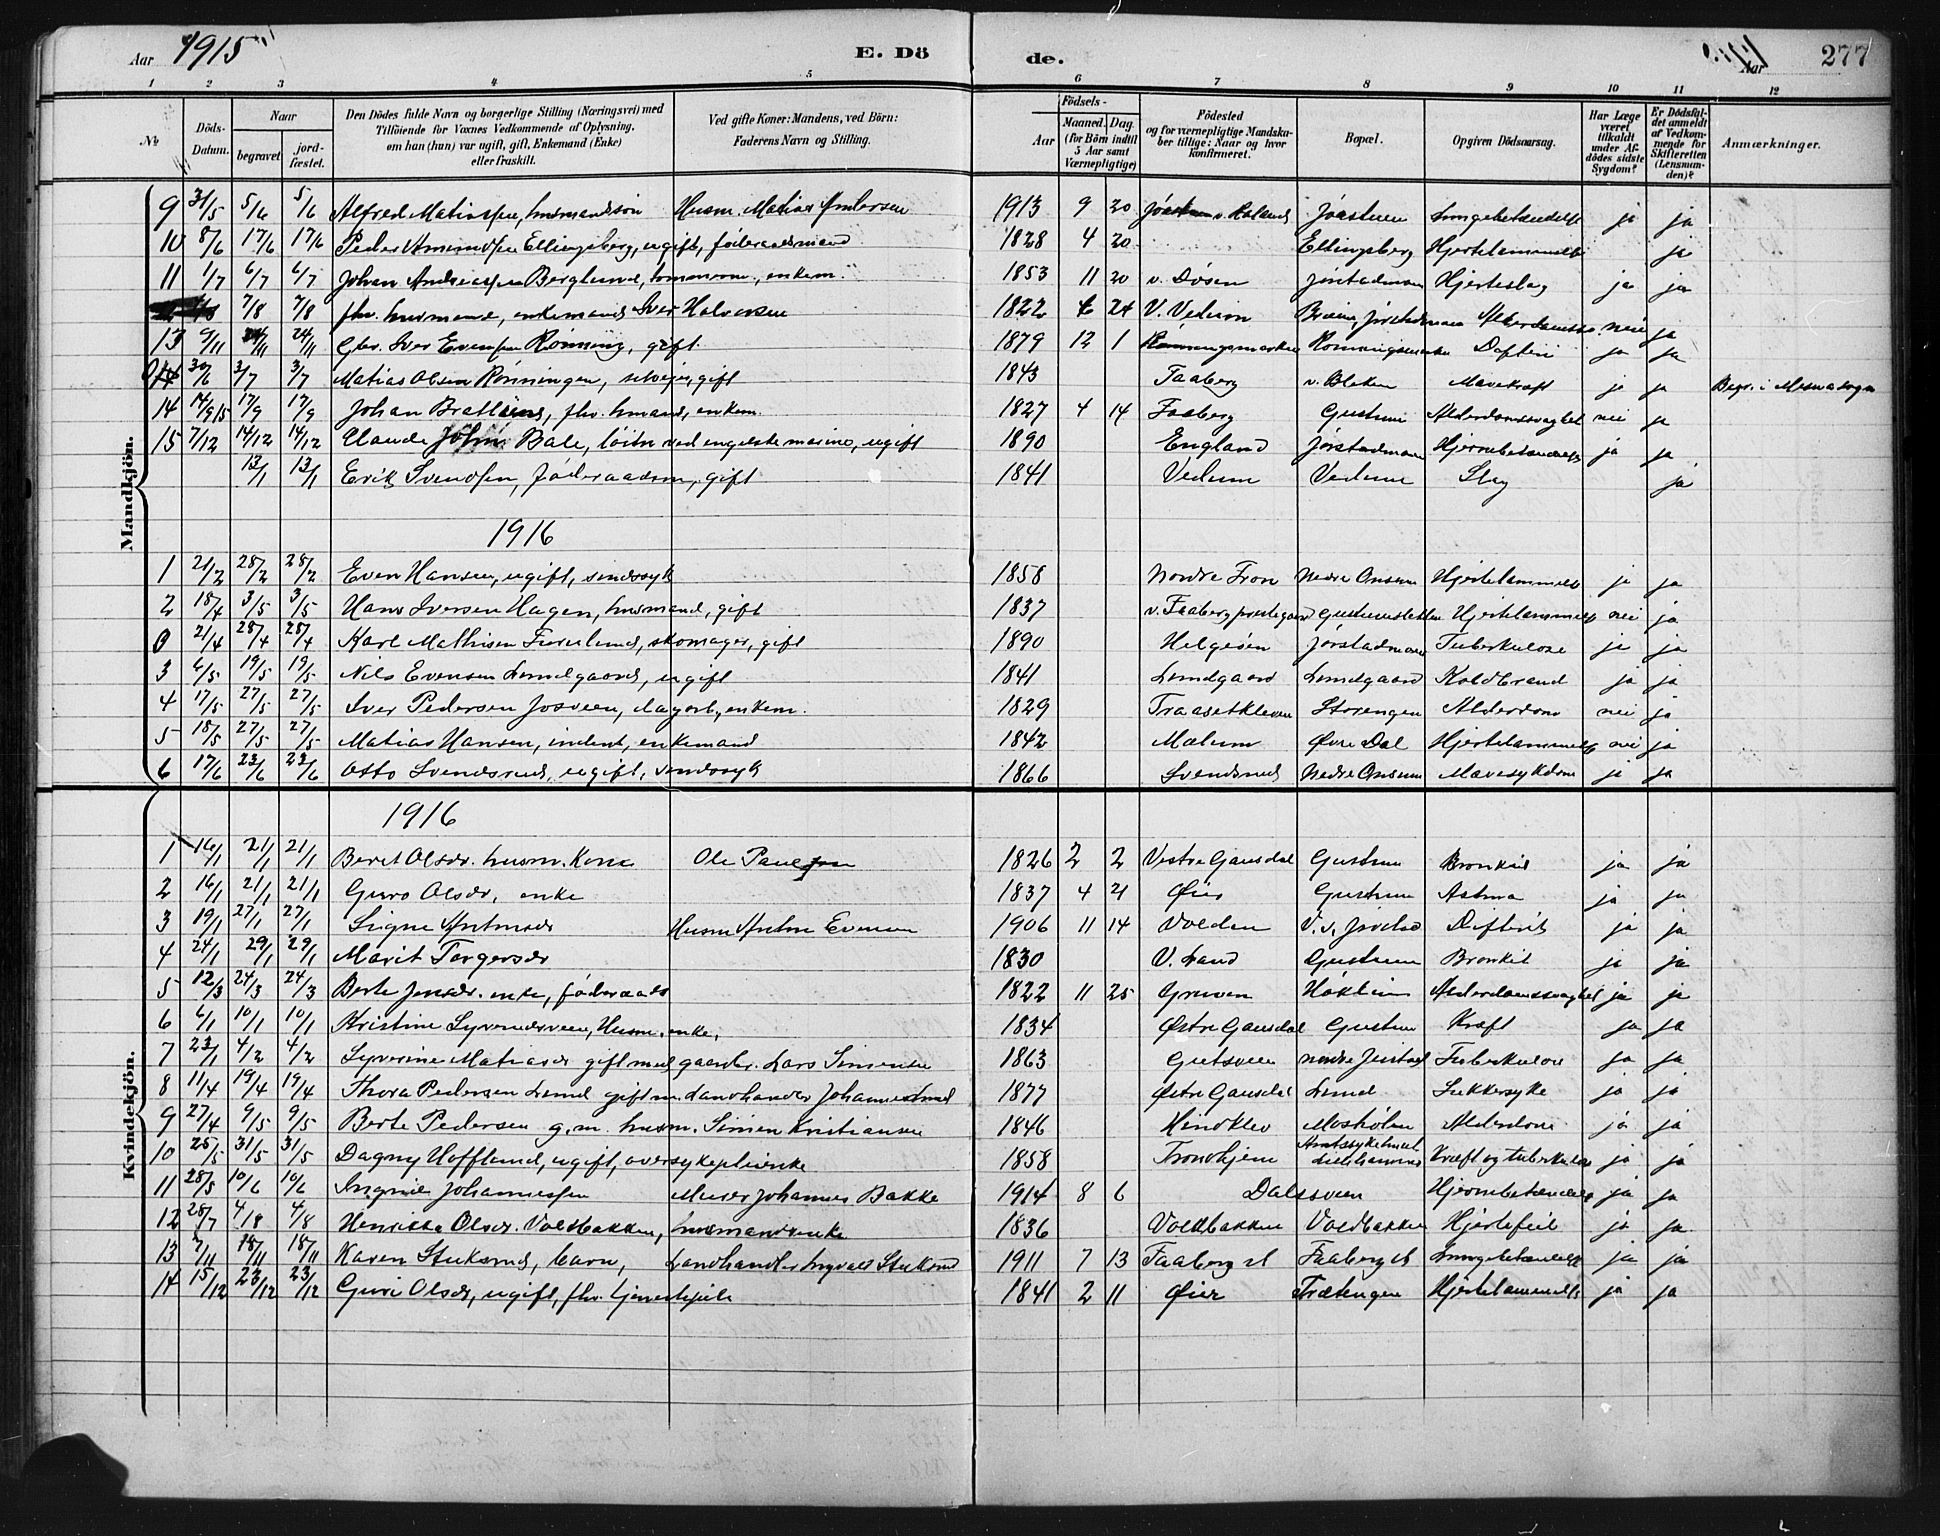 Aar 1915 E. Dö de. Aar 277
1 2 3 4 5 6 7 8 9 10 11 12
№ Döds-Datum. Naar begravet jord-fæstet. Den Dödes fulde Navn og borgerlige Stilling (Næringsvei) med Tilföiende for Voxnes Vedkommende af Oplysning, om han (hun) var ugift, gift, Enkemand (Enke) eller fraskilt. Ved gifte Koner: Mandens, ved Börn: Faderens Navn og Stilling. Födsels- Aar Maaned. Dag. (for Börn indtil 5 Aar samt Værnepligtige) Födested og for værnepligtige Mandskaber tillige: Naar og hvor konfirmeret. Bopæl. Opgiven Dödsaarsag. Har Læge været tilkaldt under Afdödes sidste Sygdom? Er Dödsfaldet anmeldt af Vedkommende for Skifteretten (Lensmanden)? Anmærkninger.
Mandkjön.
9 31/5 5/6 5/6 Alfred Matiassen, husmandssön Husm. Matias Andersen 1913 9 20 Jörstmoen Lungebetændelse ja ja
10 8/6 17/6 17/6 Peder Amundsen Ellingsberg, ugift, föderaadsmand 1828 4 20 Ellingsberg Hjertelammelse ja
11 1/7 6/7 6/7 Johan Andreassen Berglund, enkem. 1853 11 20 v. Dösen Jörstadmoen Hjerteslag ja ja
7/8 7/8 fhv. husmand, enkemand Iver Halvorsen 1822 6 24 V. Vedum Jörstadmoen nei ja
13 9/11 24/11 24/11 Gbr. Iver Evensen Rönning, gift. 1879 12 1 Rönningsmarken Difteri ja ja
30/6 3/7 3/7 Matias Olsen Rönningen, selveier, gift 1843 Faaberg v. Bleken Mavekræft ja ja Begr. i Mesna sogn
14 14/9 15 17/9 17/9 Johan Bratlund, fhv. husmand, enkem. 1827 4 14 Faaberg Gustum Alderdomssvaghet nei ja
15 7/12 14/12 14/12 Claude John Bale, löitn ved engelske marine, ugift 1890 England Jörstadmoen Hjernebetændelse ja ja
13/1 13/1 Erik Svendsen, föderaadsm, gift 1841 Vedum Vedum Slag ja
1916
1 21/2 28/2 28/2 Even Hansen, ugift, sindssyk 1858 Nordre Fron Nedre Onsum Hjertelammelse ja ja
2 18/4 3/5 3/5 Hans Iversen Hagen, husmand, gift 1837 v. Faaberg prestegaard Gustumsletten Hjertelammelse nei ja
0 21/4 28/4 28/4 Karl Mathisen Furulund, skomager, gift 1890 Helgesön Jörstadmoen Tuberkulose ja ja
3 6/5 19/5 19/5 Nils Evensen Lundgaard, ugift 1841 Lundgaard Lundgaard Koldbrand ja ja
4 17/5 27/5 27/5 Iver Pedersen Josveen, dagarb, enkem. 1829 Traasetkleven Storengen Alderdom nei ja
5 18/5 27/5 27/5 Matias Hansen, inderst, enkemand 1842 Mælum Övre Dal Hjertelammelse nei ja
6 17/6 23/6 23/6 Otto Svendsrud, ugift, sindssyk 1866 Svendsrud Nedre Onsum Mavesykdom ja ja
Kvindekjön.
1916
1 16/1 21/1 21/1 Berit Olsdr. husm. kone Ole Paulsen 1826 2 2 Vestre Gausdal Gustum Bronkit ja ja
2 16/1 21/1 21/1 Guro Olsdr, enke 1837 4 21 Öier Gustum Astma ja ja
3 19/1 27/1 27/1 Signe Antonsdr Husm Anton Evensen 1906 11 14 Volden Difterit ja ja
4 24/1 29/1 29/1 Marit Torgersdr 1830 V. Land Gustum Bronkit ja ja
5 12/3 24/3 24/3 Berte Jensdr. enke, föderaads 1822 11 25 Gruven Alderdomssvaghet ja ja
6 6/1 10/1 10/1 Kristine Syverudsveen, Husm. enke. 1834 Östre Gausdal Gustum Kræft ja ja
7 23/1 4/2 4/2 Syverine Matiasdr gift med gaardbr. Lars Simensen 1863 Gutsveen nordre Jörstad Tuberkulose ja ja
8 11/4 19/4 19/4 Thora Pedersen Lund gift m. Landhandler Johannes Lund 1877 Östre Gausdal Lund Sukkersyke ja ja
9 27/4 9/5 9/5 Berte Pedersen g. m. husm. Simen Kristiansen 1846 Hindklev Mosholen Alderdom ja ja
10 25/5 31/5 31/5 Dagny Hoffland, ugift, oversykepleierske 1858 Trondhjem Amtssykehuset Lillehammer Kræft og tuberkulose ja ja
11 28/5 10/6 10/6 Johannessen Murer Johannes Bakke 1914 8 6 Dalssveen Hjernebetændelse ja ja
12 28/7 4/8 4/8 Henrikka Olsdr. Voldbakken, husmandsenke 1836 Voldbakken Voldbakken Hjertefeil ja ja
13 7/11 18/11 18/11 Karen Stuksrud, barn, Landhandler Ingvald Stuksrud 1911 7 13 Faaberg st Faaberg st Lungebetændelse ja ja
14 15/12 23/12 23/12 Guri Olsdr, ugift, fhv. tjenestepike 1841 2 11 Öier Trætengen Hjertelammelse ja ja